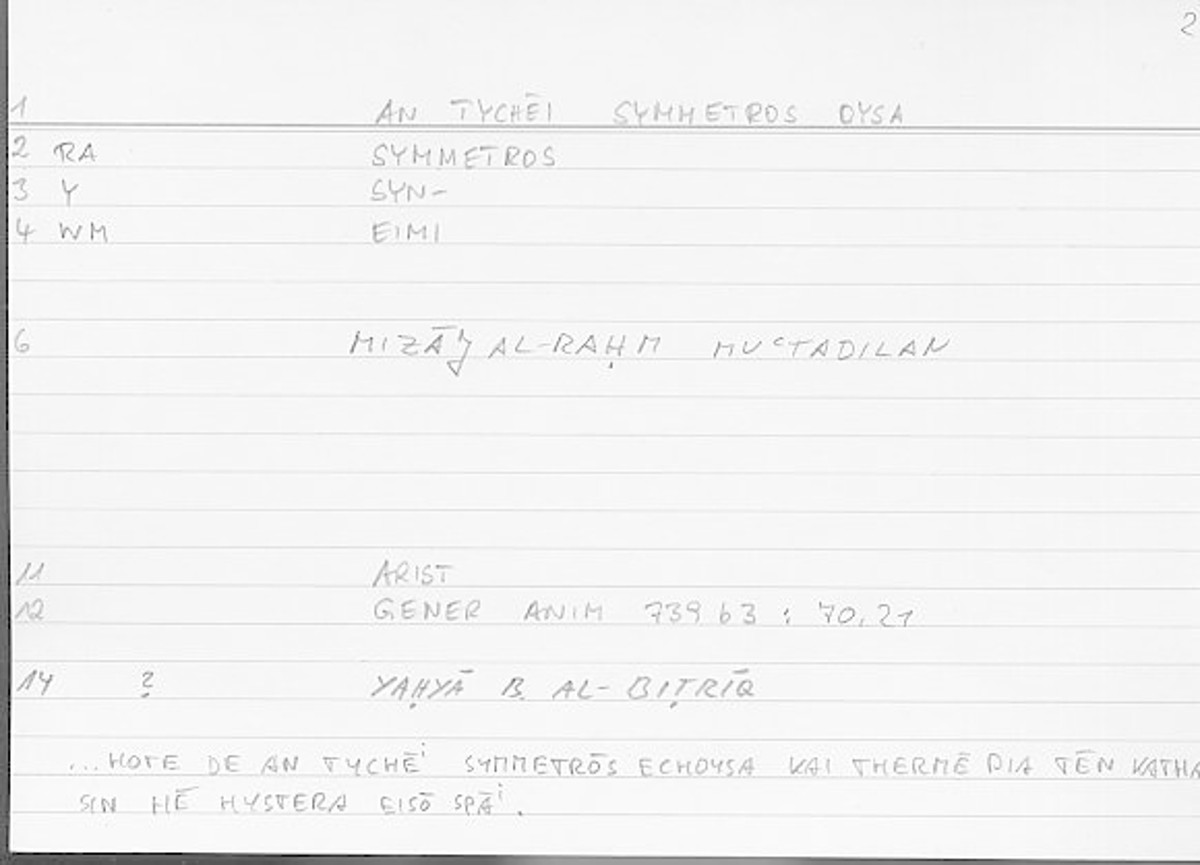 2
1 AN TYCHĒI SYMMETROS OYSA
2 RA SYMMETROS
3 Y SYN-
4 WM EIMI
6 MIZĀǦ AL-RAḤM MUʿTADILAN
11 ARIST
12 GENER ANIM 739 b3 : 70,21
14 ? YAḤYĀ B. AL-BIṬRĪQ
...HOTE DE AN TYCHĒⁱ SYMMETRŌS ECHOYSA KAI THERMĒ DIA TĒN KATHA
SIN HĒ HYSTERA EISŌ SPĀⁱ.